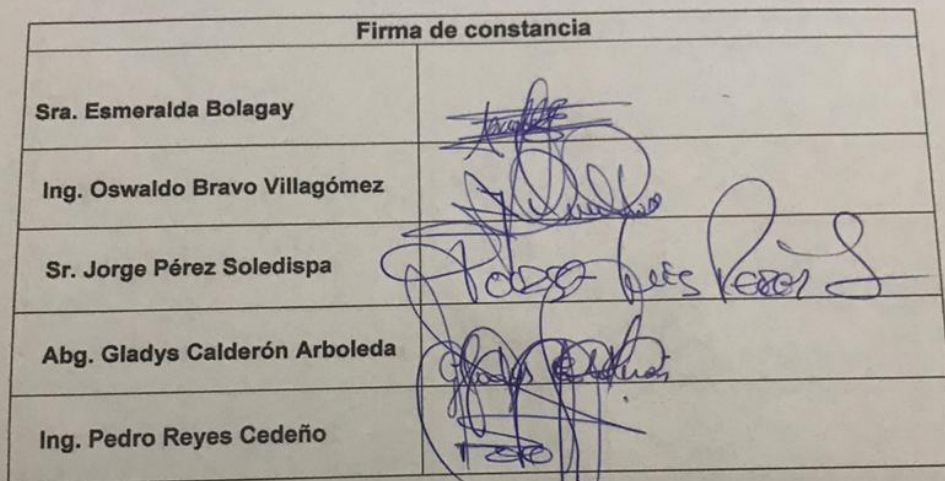 Firma de constancia
Sra. Esmeralda Bolagay
Ing. Oswaldo Bravo Villagómez
Sr. Jorge Pérez Soledispa
Jorge Luis Perez S
Abg. Gladys Calderón Arboleda
Gladys Calderón
Ing. Pedro Reyes Cedeño